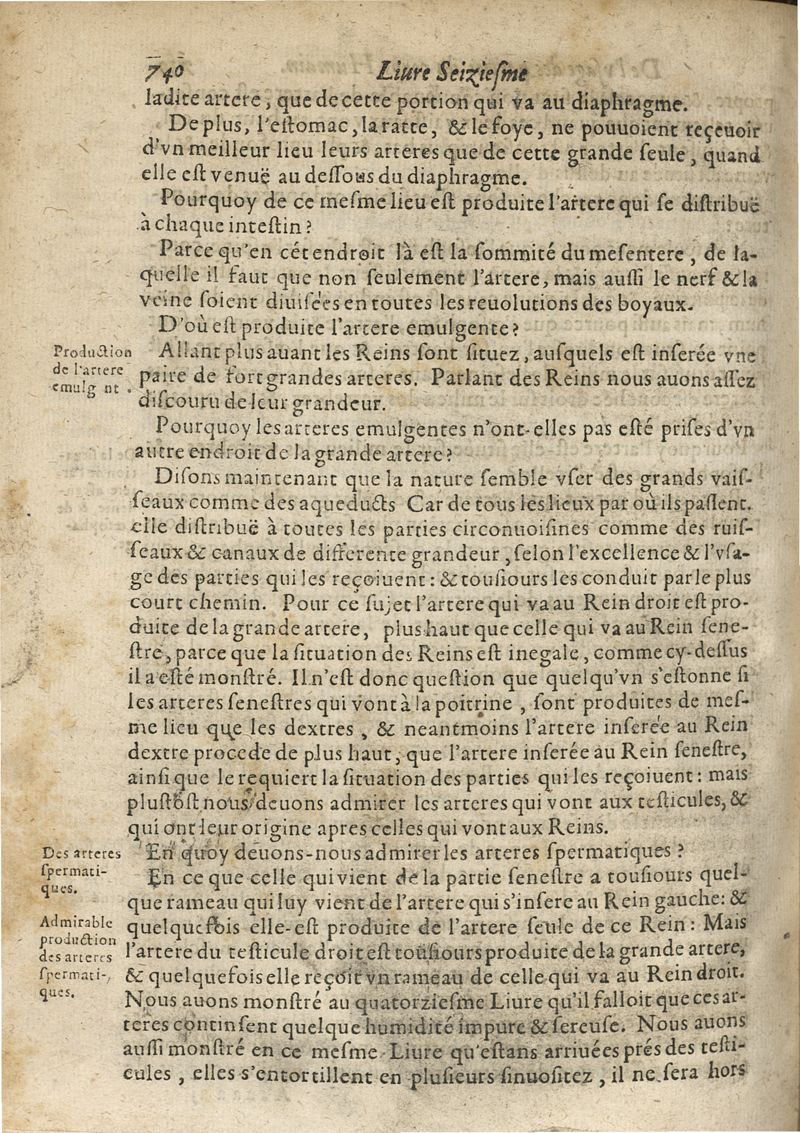 740
Liure Seiziesme
ladite artere, que de cette portion qui va au diaphragme.
De plus, l'estomac, la ratte, & le foye, ne pouuoient reçeuoir
d'vn meilleur lieu leurs arteres que de cette grande seule, quand
elle est venuë au dessous du diaphragme.
Pourquoy de ce mesme lieu est produite l'artere qui se distribuë
à chaque intestin?
Parce qu'en cét endroit là est la sommité du mesentere, de la-
quelle il faut que non seulement l'artere, mais aussi le nerf & la
veine soient diuisées en toutes les reuolutions des boyaux.
D'où est produite l'artere emulgente?
Production
de l'artere
emulg nt.
Allant plus auant les Reins sont situez, ausquels est inserée vne
paire de fort grandes arteres. Parlant des Reins nous auons assez
discouru de leur grandeur.
Pourquoy les arteres emulgentes n'ont-elles pas esté prises d'vn
autre endroit de la grande artere?
Disons maintenant que la nature semble vser des grands vais-
seaux comme des aqueducts Car de tous les lieux par où ils passent.
elle distribuë à toutes les parties circonuoisines comme des ruis-
seaux & canaux de differente grandeur, selon l'excellence & l'vsa-
ge des parties qui les reçoiuent: & tousiours les conduit par le plus
court chemin. Pour ce sujet l'artere qui va au Rein droit est pro-
duite de la grande artere, plus haut que celle qui va au Rein sene-
stre, parce que la situation des Reins est inegale, comme cy-dessus
il a esté monstré. Il n'est donc question que quelqu'vn s'estonne si
les arteres senestres qui vont à la poitrine, sont produites de mes-
me lieu que les dextres, & neantmoins l'artere inserée au Rein
dextre procede de plus haut, que l'artere inserée au Rein senestre,
ainsi que le requiert la situation des parties qui les reçoiuent: mais
plustost nous deuons admirer les arteres qui vont aux testicules, &
qui ont leur origine apres celles qui vont aux Reins.
Des arteres
spermati-
ques.
En quoy deuons-nous admirer les arteres spermatiques?
En ce que celle qui vient de la partie senestre a tousiours quel-
que rameau qui luy vient de l'artere qui s'insere au Rein gauche: &
Admirable
production
des arteres
spermati-
ques.
quelquefois elle-est produite de l'artere seule de ce Rein: Mais
l'artere du testicule droit est tousiours produite de la grande artere,
& quelquefois elle reçoit vn rameau de celle qui va au Rein droit.
Nous auons monstré au quatorziesme Liure qu'il falloit que ces ar-
teres continsent quelque humidité impure & sereuse. Nous auons
aussi monstré en ce mesme Liure qu'estans arriuées prés des testi-
cules, elles s'entortillent en plusieurs sinuositez, il ne sera hors